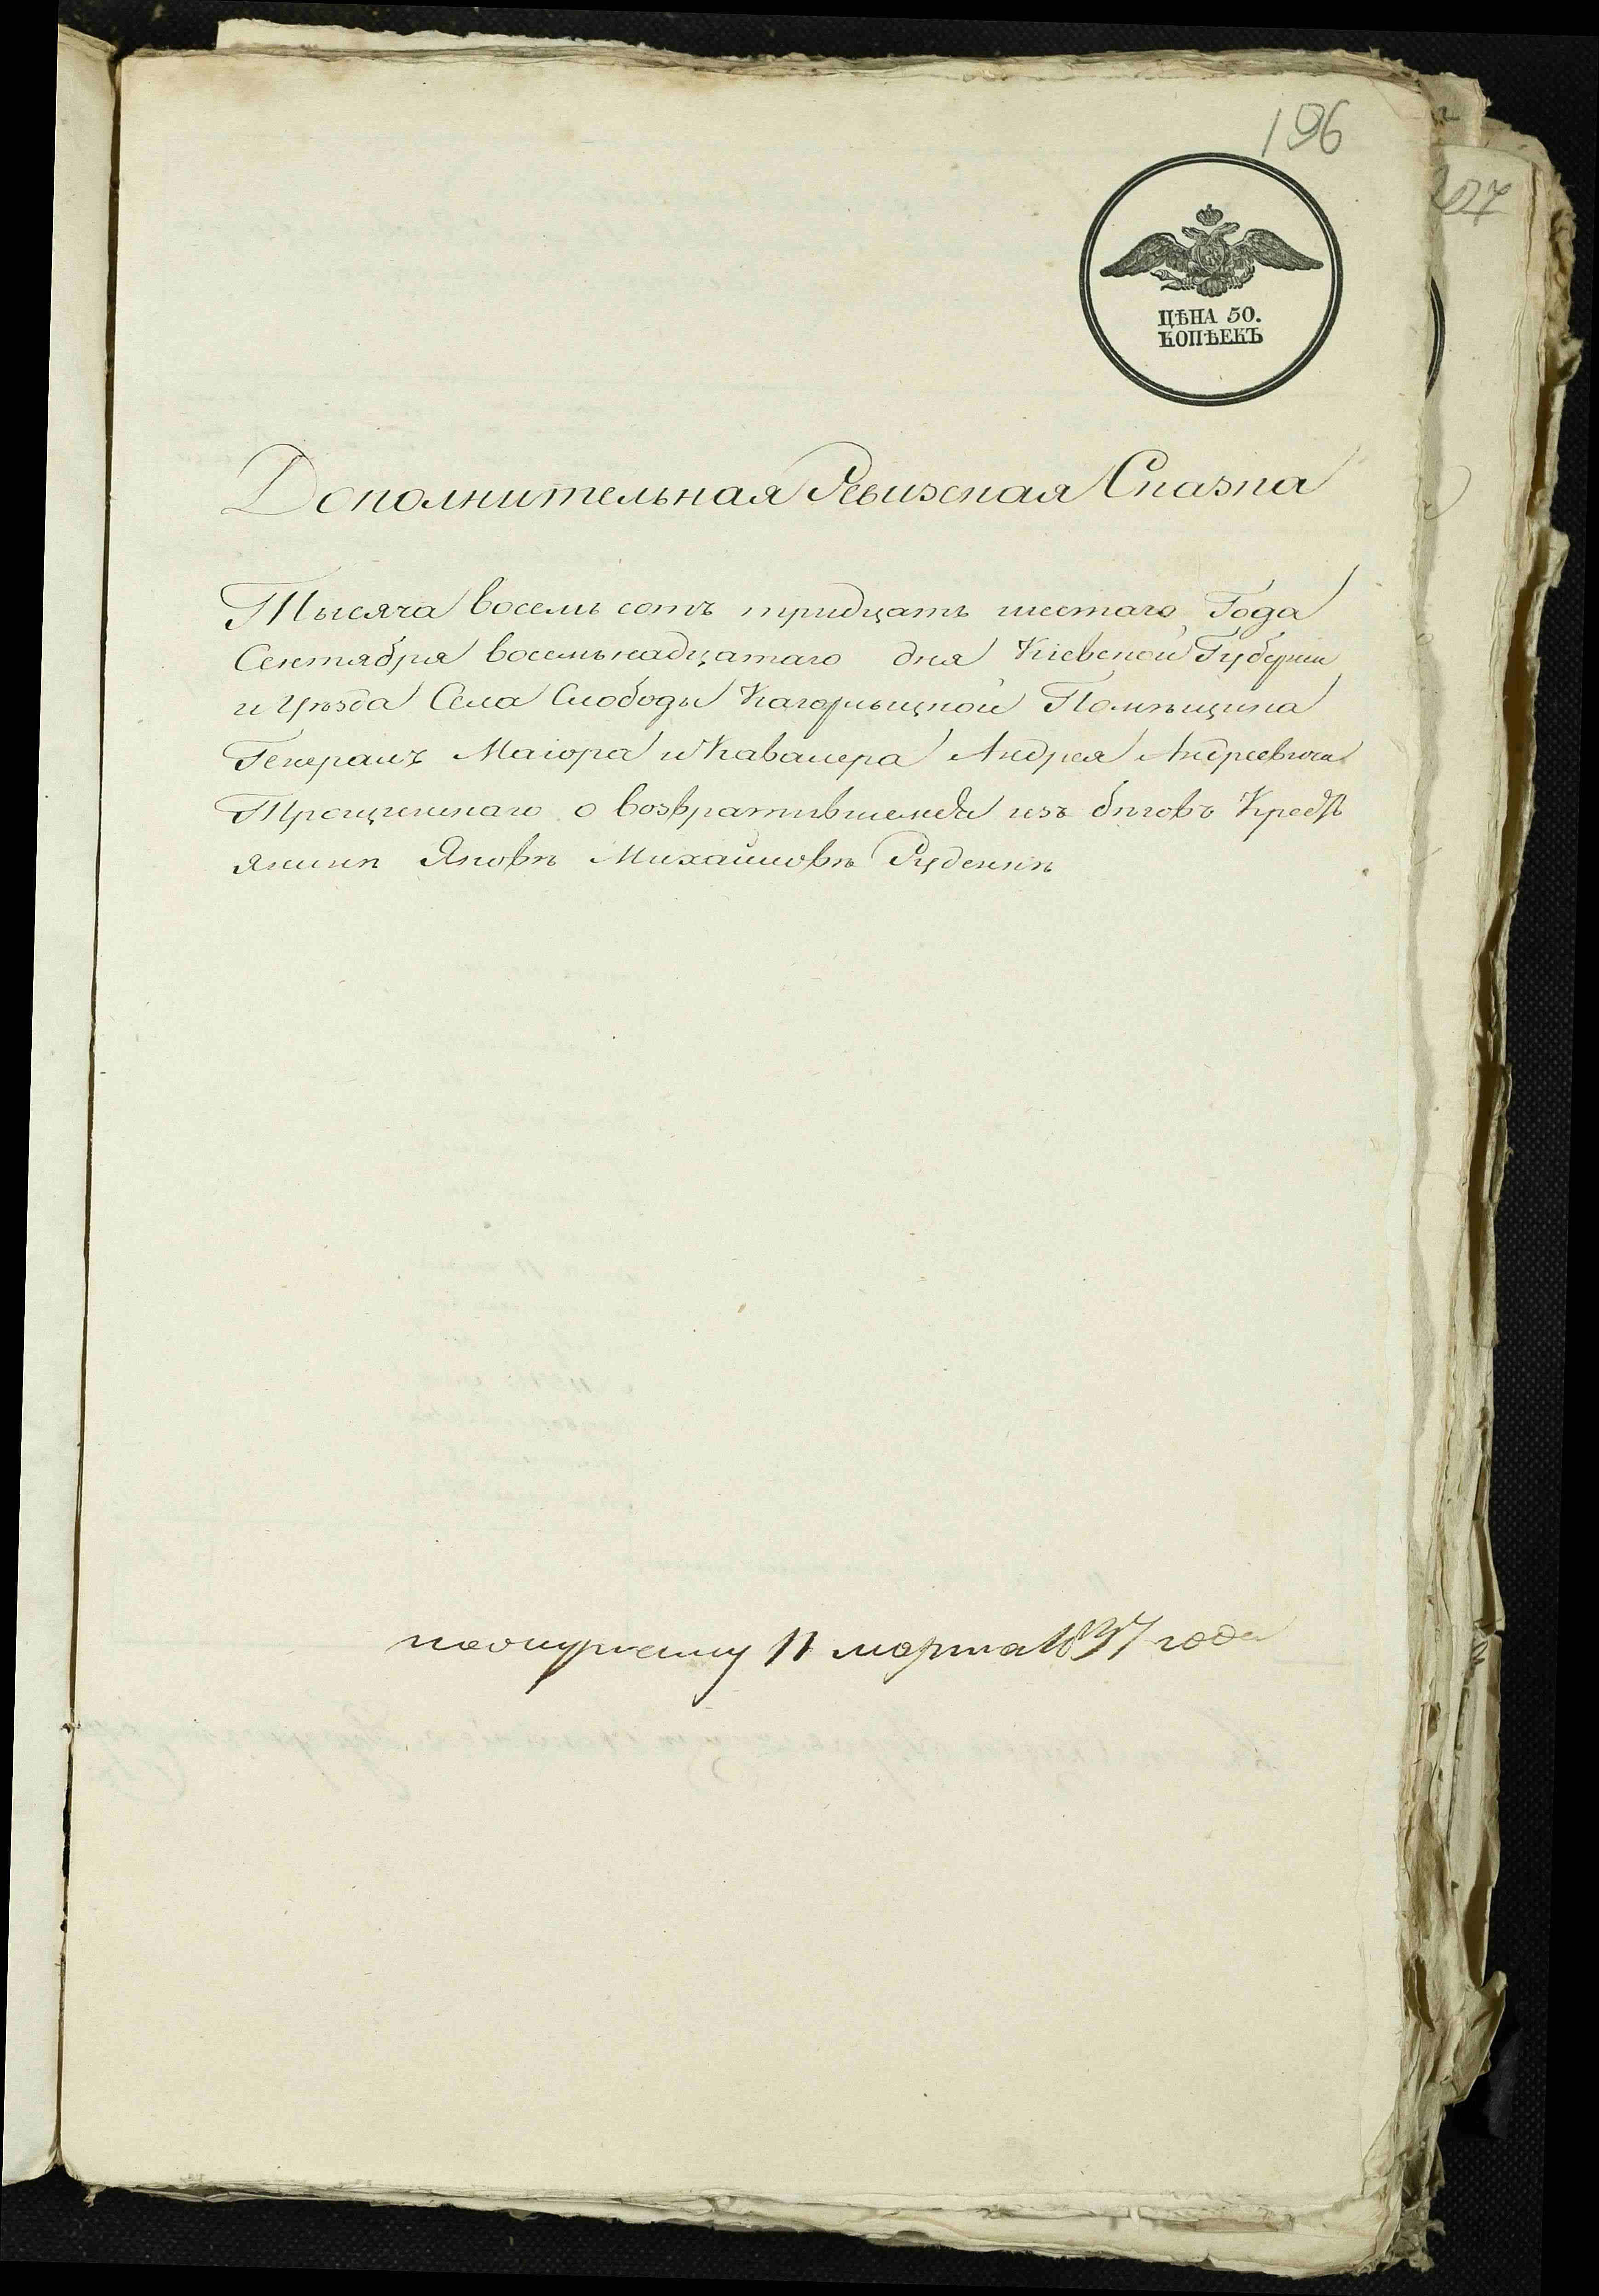 196
207
ЦѢНА 50.
КОПѢЕКЪ
Дополнительная Ревизская Сказка
Тысяча восемь сотъ тридцать шестаго Года
Сентября восемьнадцатаго дня Кіевской Губерніи
и Уѣзда Села Слободы Кагорлыцкой Помѣщика
Генералъ Маіора и Кавалера Андрея Андреевича
Трощинскаго о возвратившемся изъ бѣговъ Крест
янинѣ Яковѣ Михайловѣ Руденкѣ
11 марта 1837 года